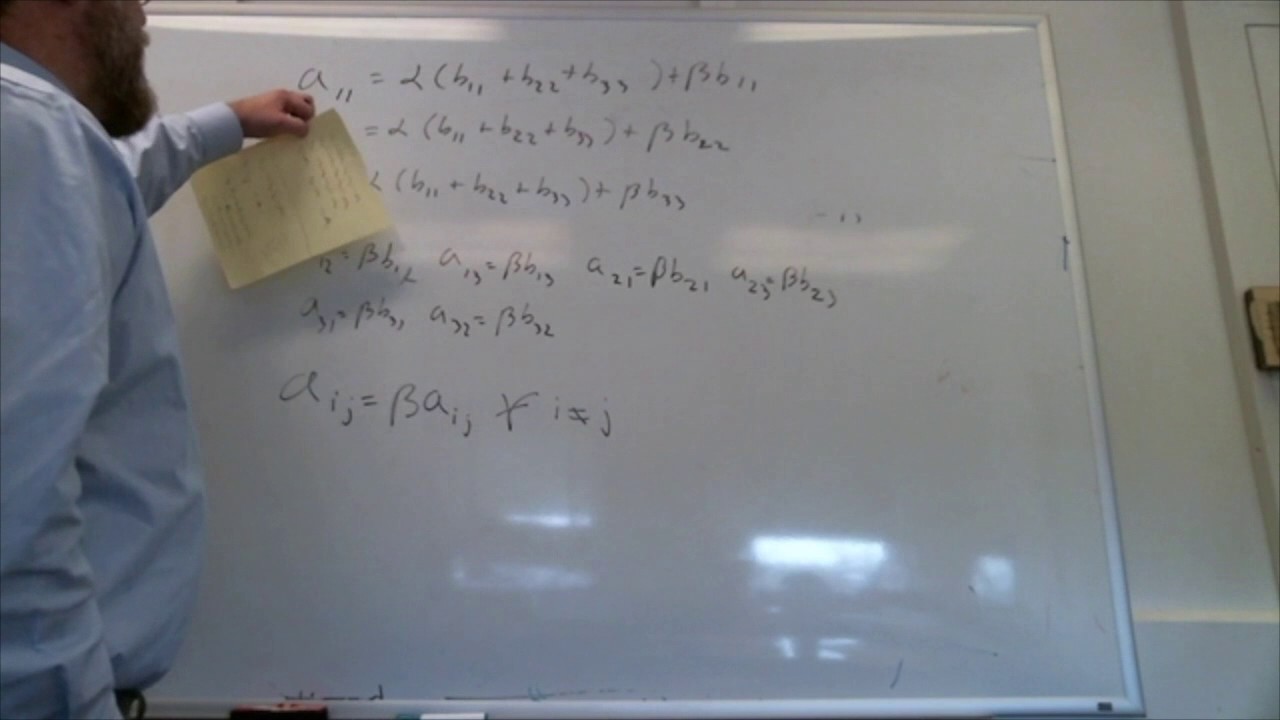 a₁₁ = α(b₁₁ + b₂₂ + b₃₃) + βb₁₁
= α(b₁₁ + b₂₂ + b₃₃) + βb₂₂
α(b₁₁ + b₂₂ + b₃₃) + βb₃₃
₁₂ = βb₁₂ a₁₃ = βb₁₃ a₂₁ = βb₂₁ a₂₃ = βb₂₃
a₃₁ = βb₃₁ a₃₂ = βb₃₂
aᵢⱼ = βaᵢⱼ ∀ i ≠ j